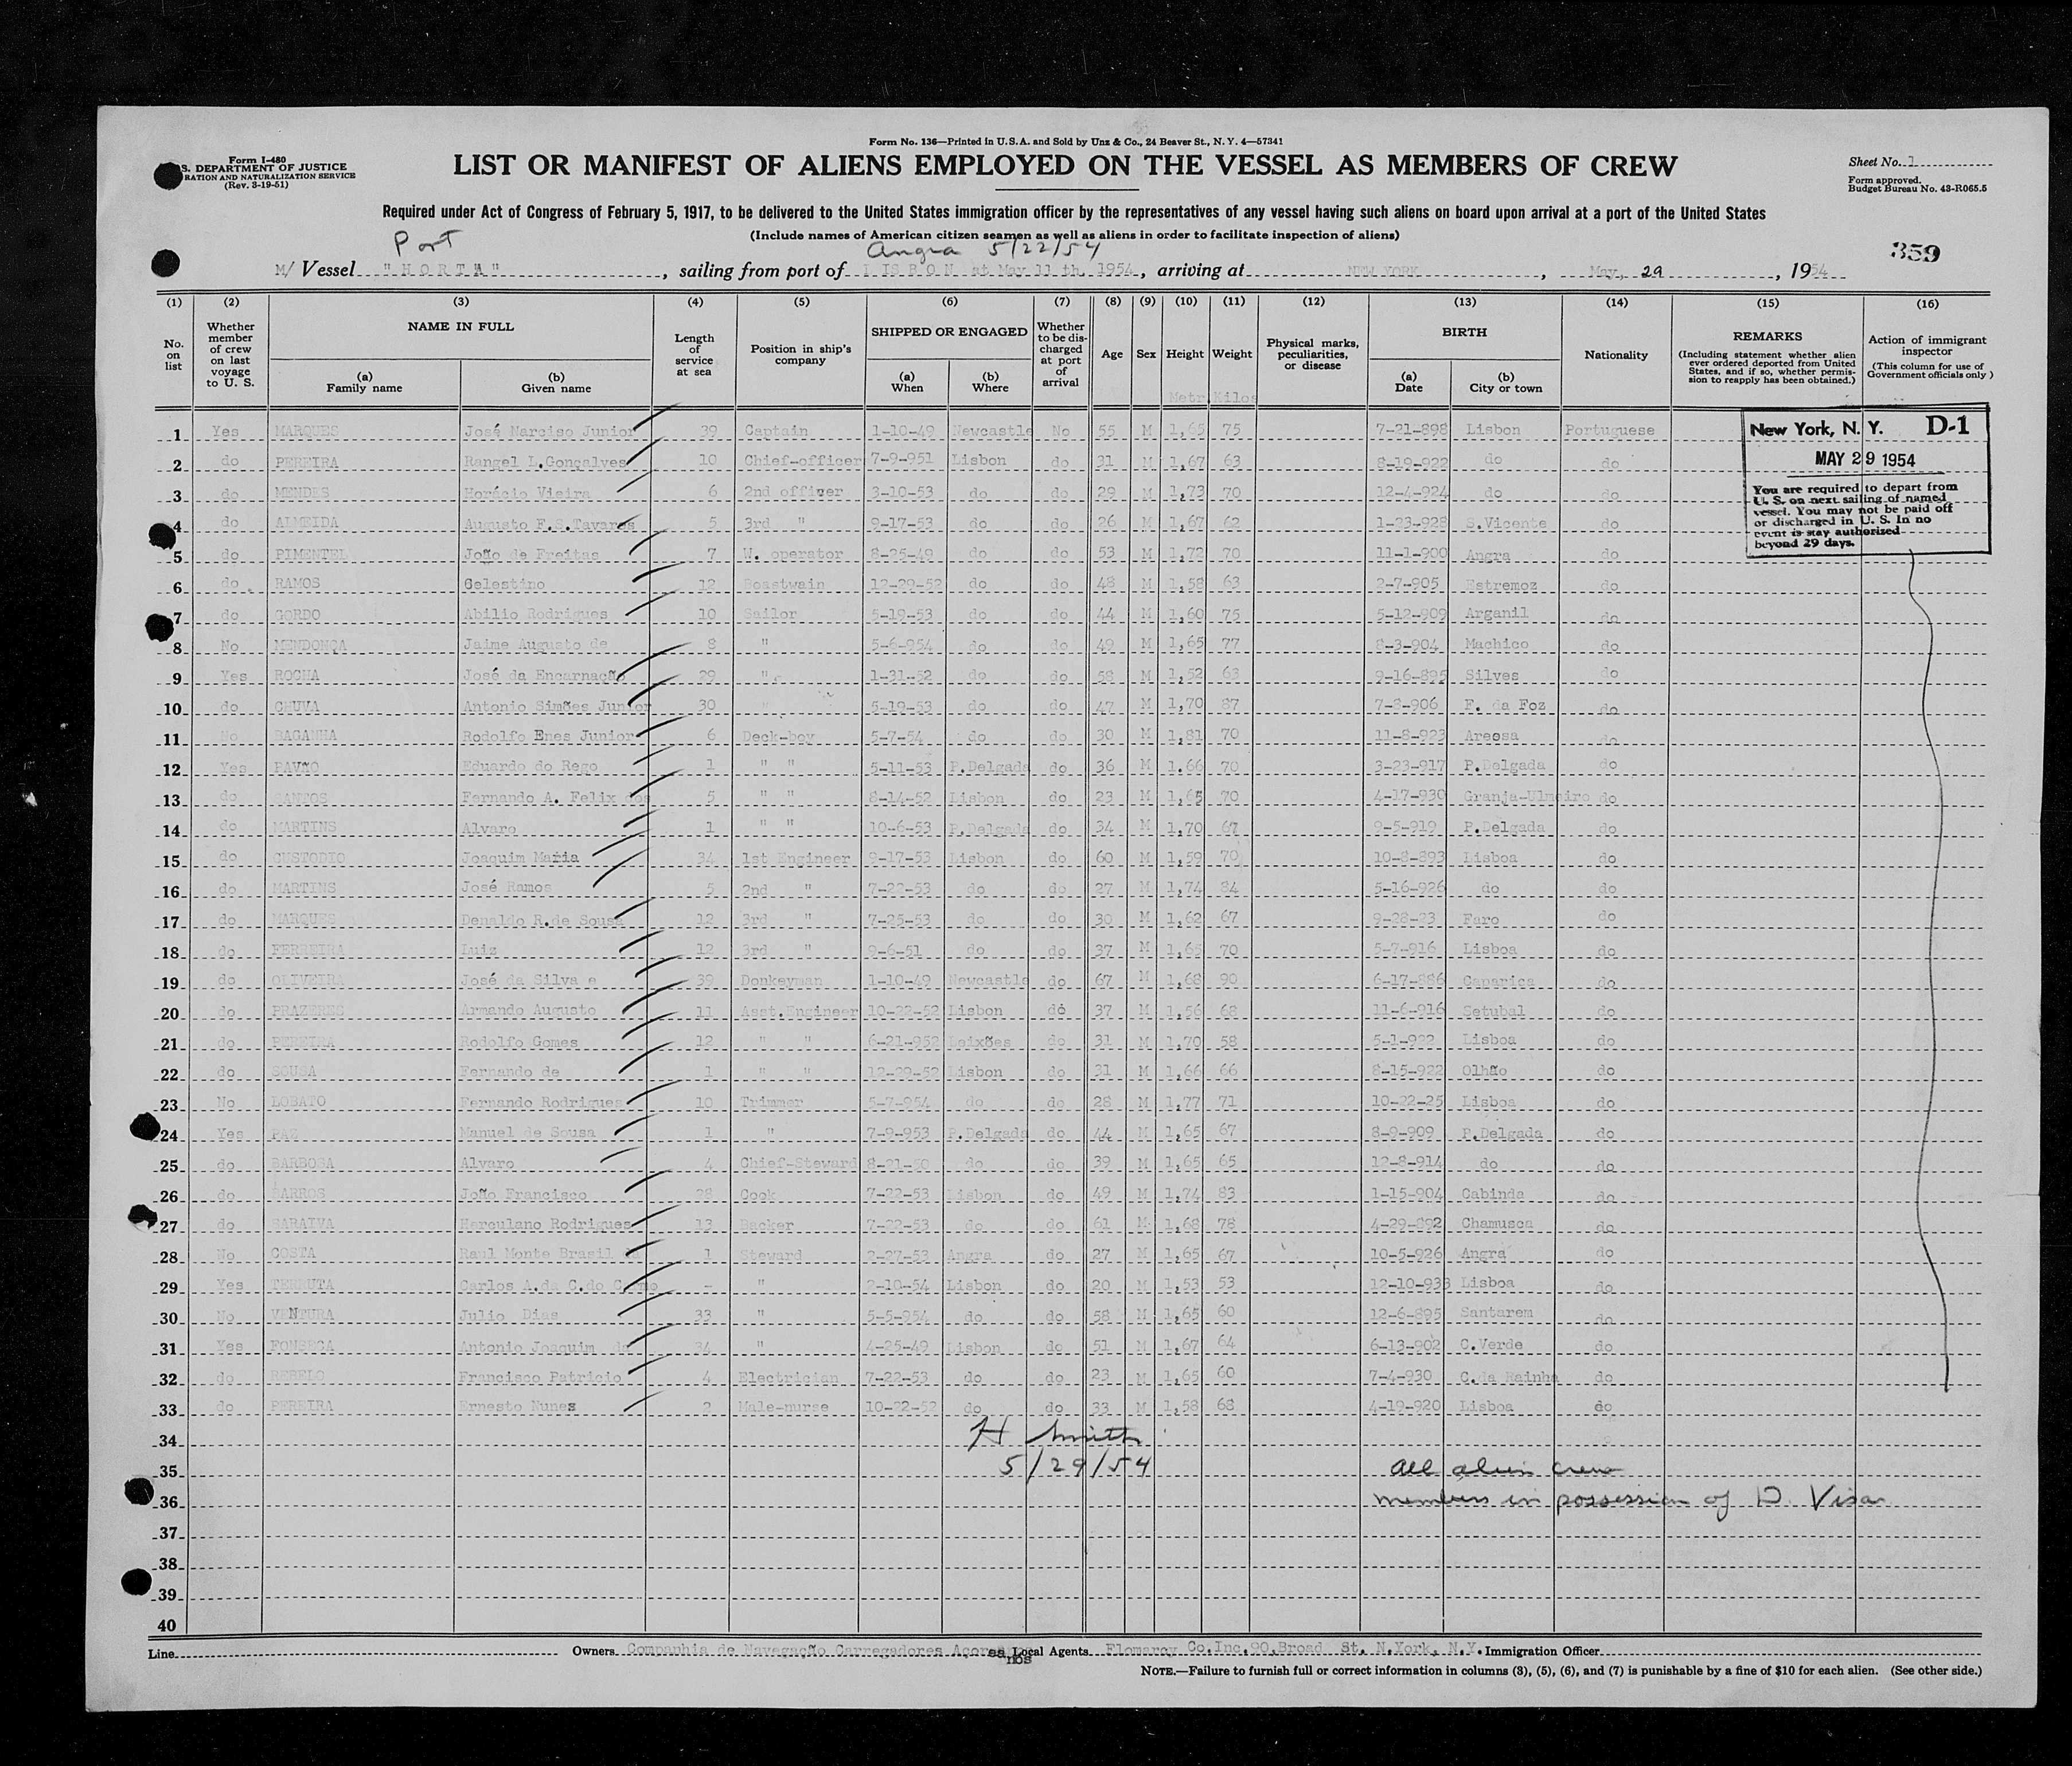 Form No. 136—Printed in U.S.A. and Sold by Unz & Co., 24 Beaver St., N. Y. 4—57341
Form I-480
S. DEPARTMENT OF JUSTICE
RATION AND NATURALIZATION SERVICE
(Rev. 3-19-51)
LIST OR MANIFEST OF ALIENS EMPLOYED ON THE VESSEL AS MEMBERS OF CREW
Sheet No. 1
Form approved.
Budget Bureau No. 43-R065.5
Required under Act of Congress of February 5, 1917, to be delivered to the United States immigration officer by the representatives of any vessel having such aliens on board upon arrival at a port of the United States
(Include names of American citizen seamen as well as aliens in order to facilitate inspection of aliens)
Port
Angra 5/22/54
359
M/ Vessel "HORTA", sailing from port of LISBON at May 11 th. 1954, arriving at NEW YORK, May, 29, 1954
(1) (2) (3) (4) (5) (6) (7) (8) (9) (10) (11) (12) (13) (14) (15) (16)
No. on list
Whether member of crew on last voyage to U. S.
NAME IN FULL
(a) Family name
(b) Given name
Length of service at sea
Position in ship's company
SHIPPED OR ENGAGED
(a) When
(b) Where
Whether to be discharged at port of arrival
Age
Sex
Height
Weight
Physical marks, peculiarities, or disease
BIRTH
(a) Date
(b) City or town
Nationality
REMARKS
(Including statement whether alien ever ordered deported from United States, and if so, whether permission to reapply has been obtained.)
Action of immigrant inspector
(This column for use of Government officials only)
Metr Kilos
1 Yes MARQUES José Narciso Junior 39 Captain 1-10-49 Newcastle No 55 M 1,65 75 7-21-898 Lisbon Portuguese
2 do PEREIRA Rangel L.Gonçalves 10 Chief-officer 7-9-951 Lisbon do 31 M 1,67 63 8-19-922 do do
3 do MENDES Horácio Vieira 6 2nd officer 3-10-53 do do 29 M 1,73 70 12-4-924 do do
4 do ALMEIDA Augusto F.S.Tavares 5 3rd " 9-17-53 do do 26 M 1,67 62 1-23-928 S.Vicente do
5 do PIMENTEL João de Freitas 7 W. operator 8-25-49 do do 53 M 1,72 70 11-1-900 Angra do
6 do RAMOS Celestino 12 Boastwain 12-29-52 do do 48 M 1,58 63 2-7-905 Estremoz do
7 do GORDO Abilio Rodrigues 10 Sailor 5-19-53 do do 44 M 1,60 75 5-12-909 Arganil do
8 No MENDONÇA Jaime Augusto de 8 " 5-6-954 do do 49 M 1,65 77 8-3-904 Machico do
9 Yes ROCHA José da Encarnação 29 " 1-31-52 do do 58 M 1,52 63 9-16-895 Silves do
10 do CHUVA Antonio Simões Junior 30 " 5-19-53 do do 47 M 1,70 87 7-8-906 F. da Foz do
11 No BAGANHA Rodolfo Enes Junior 6 Deck-boy 5-7-54 do do 30 M 1,81 70 11-8-923 Areosa do
12 Yes PAVÃO Eduardo do Rego 1 " " 5-11-53 P.Delgada do 36 M 1.66 70 3-23-917 P.Delgada do
13 do SANTOS Fernando A. Felix dos 5 " " 8-14-52 Lisbon do 23 M 1,65 70 4-17-930 Granja-Ulmeiro do
14 do MARTINS Alvaro 1 " " 10-6-53 P.Delgada do 34 M 1,70 67 9-5-919 P.Delgada do
15 do CUSTODIO Joaquim Maria 34 1st Engineer 9-17-53 Lisbon do 60 M 1,59 70 10-8-893 Lisboa do
16 do MARTINS José Ramos 5 2nd " 7-22-53 do do 27 M 1,74 84 5-16-926 do do
17 do MARQUES Denaldo R.de Sousa 12 3rd " 7-25-53 do do 30 M 1,62 67 9-28-23 Faro do
18 do FERREIRA Luiz 12 3rd " 9-6-51 do do 37 M 1,65 70 5-7-916 Lisboa do
19 do OLIVEIRA José da Silva e 39 Donkeyman 1-10-49 Newcastle do 67 M 1,68 90 6-17-886 Caparica do
20 do PRAZERES Armando Augusto 11 Asst.Engineer 10-22-52 Lisbon do 37 M 1,56 68 11-6-916 Setubal do
21 do PEREIRA Rodolfo Gomes 12 " " 6-21-952 Leixões do 31 M 1,70 58 5-1-922 Lisboa do
22 do SOUSA Fernando de 1 " " 12-29-52 Lisbon do 31 M 1,66 66 8-15-922 Olhão do
23 No LOBATO Fernando Rodrigues 10 Trimmer 5-7-954 do do 28 M 1,77 71 10-22-25 Lisboa do
24 Yes PAZ Manuel de Sousa 1 " 7-9-953 P.Delgada do 44 M 1,65 67 8-9-909 P.Delgada do
25 do BARBOSA Alvaro 4 Chief-Steward 8-21-50 do do 39 M 1,65 65 12-8-914 do do
26 do BARROS João Francisco 28 Cook 7-22-53 Lisbon do 49 M 1,74 83 1-15-904 Cabinda do
27 do SARAIVA Herculano Rodrigues 13 Backer 7-22-53 do do 61 M 1,68 78 4-29-892 Chamusca do
28 No COSTA Raul Monte Brasil da 1 Steward 2-27-53 Angra do 27 M 1,65 67 10-5-926 Angra do
29 Yes TERRUTA Carlos A.da C.do Carmo - " 2-10-54 Lisbon do 20 M 1,53 53 12-10-933 Lisboa do
30 No VENTURA Julio Dias 33 " 5-5-954 do do 58 M 1,65 60 12-6-895 Santarem do
31 Yes FONSECA Antonio Joaquim da 34 " 4-25-49 Lisbon do 51 M 1,67 64 6-13-902 C.Verde do
32 do REBELO Francisco Patricio 4 Electrician 7-22-53 do do 23 M 1,65 60 7-4-930 C.da Rainha do
33 do PEREIRA Ernesto Nunes 2 Male-nurse 10-22-52 do do 33 M 1,58 68 4-19-920 Lisboa do
34
35
36
37
38
39
40
New York, N. Y. D-1
MAY 29 1954
You are required to depart from
U. S. on next sailing of named
vessel. You may not be paid off
or discharged in U. S. In no
event is stay authorized
beyond 29 days.
H Smith
5/29/54
All alien crew
members in possession of D Visa
Line Owners Companhia de Navegação Carregadores Açoreanos Local Agents Flomarcy Co.Inc.90,Broad St. N.York, N.Y. Immigration Officer
NOTE.—Failure to furnish full or correct information in columns (3), (5), (6), and (7) is punishable by a fine of $10 for each alien. (See other side.)